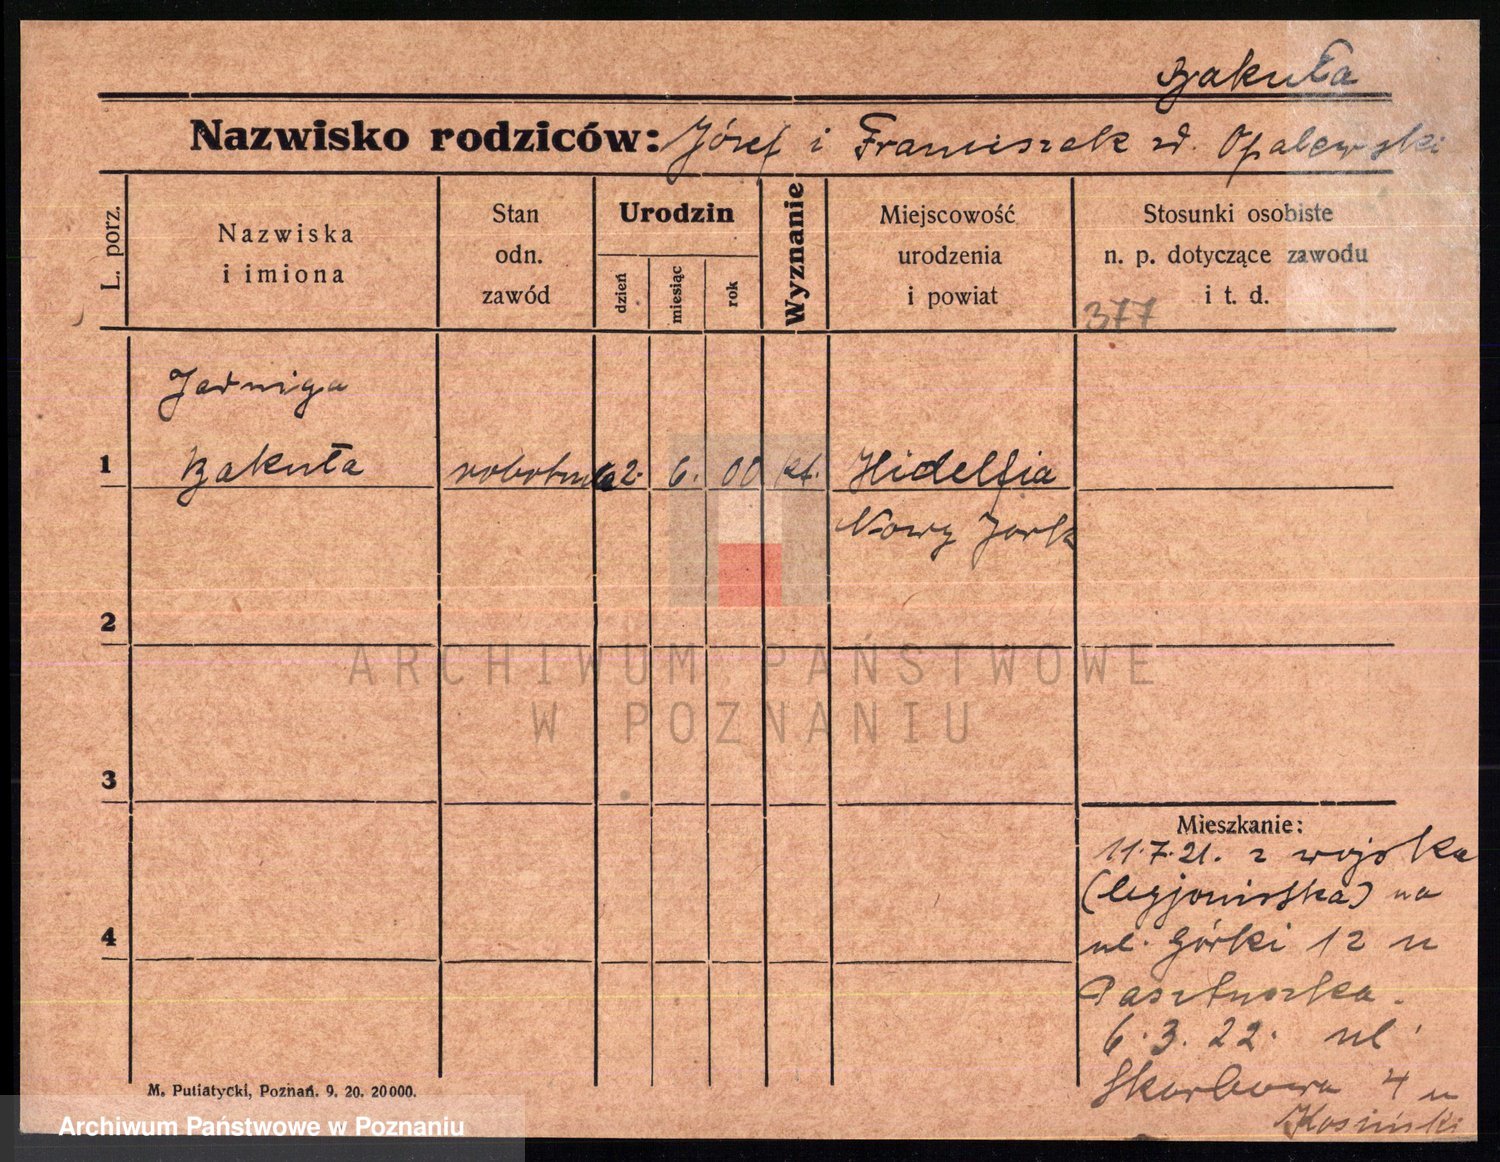 Bakuła
Nazwisko rodziców: Józef i Franciszek zd. Opalewski
L. porz.
Nazwiska
i imiona
Stan
odn.
zawód
Urodzin
dzień
miesiąc
rok
Wyznanie
Miejscowość
urodzenia
i powiat
Stosunki osobiste
n. p. dotyczące zawodu
i t. d.
377
Jadwiga
1 Bakuła robotnica 2. 6. 00 kt. Hidelfia
Nowy Jork
2
ARCHIWUM PAŃSTWOWE
W POZNANIU
3
4
Mieszkanie:
11.7.21. z wojska
(legjonistka) na
ul. Górki 12 u
Pasztuszka.
6.3.22. ul.
Skarbowa 4 u
Kosiński
M. Putiatycki, Poznań. 9. 20. 20000.
Archiwum Państwowe w Poznaniu